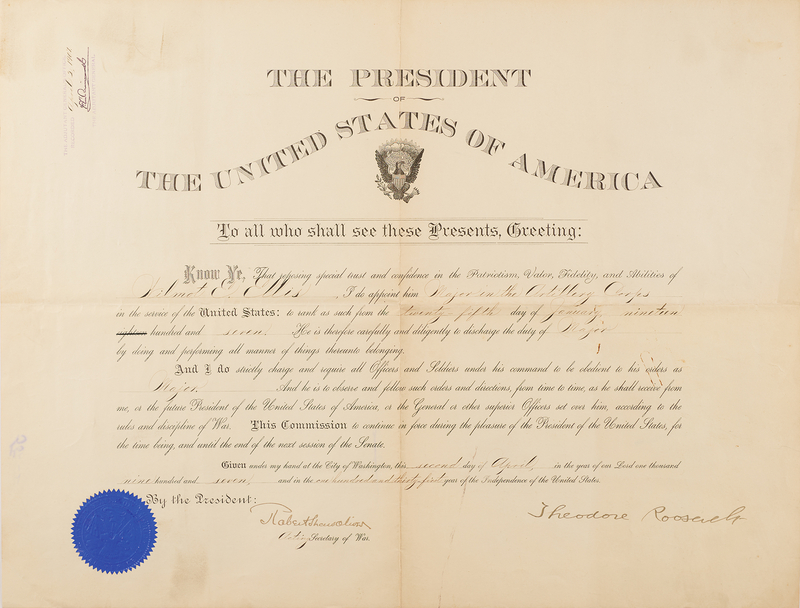 THE PRESIDENT
OF
THE UNITED STATES OF AMERICA
To all who shall see these Presents, Greeting:
Know Ye, That reposing special trust and confidence in the Patriotism, Valor, Fidelity, and Abilities of
Wilmot E. Ellis, I do appoint him Major in the Artillery Corps
in the service of the United States: to rank as such from the twenty fifth day of January nineteen
eighteen hundred and seven. He is therefore carefully and diligently to discharge the duty of Major
by doing and performing all manner of things thereunto belonging.
And I do strictly charge and require all Officers and Soldiers under his command to be obedient to his orders as
Major. And he is to observe and follow such orders and directions, from time to time, as he shall receive from
me, or the future President of the United States of America, or the General or other superior Officers set over him, according to the
rules and discipline of War. This Commission to continue in force during the pleasure of the President of the United States, for
the time being, and until the end of the next session of the Senate.
Given under my hand at the City of Washington, this second day of April, in the year of our Lord one thousand
nine hundred and seven, and in the one hundred and thirty first year of the Independence of the United States.
By the President:
Theodore Roosevelt
Robert Shaw Oliver
Acting Secretary of War.